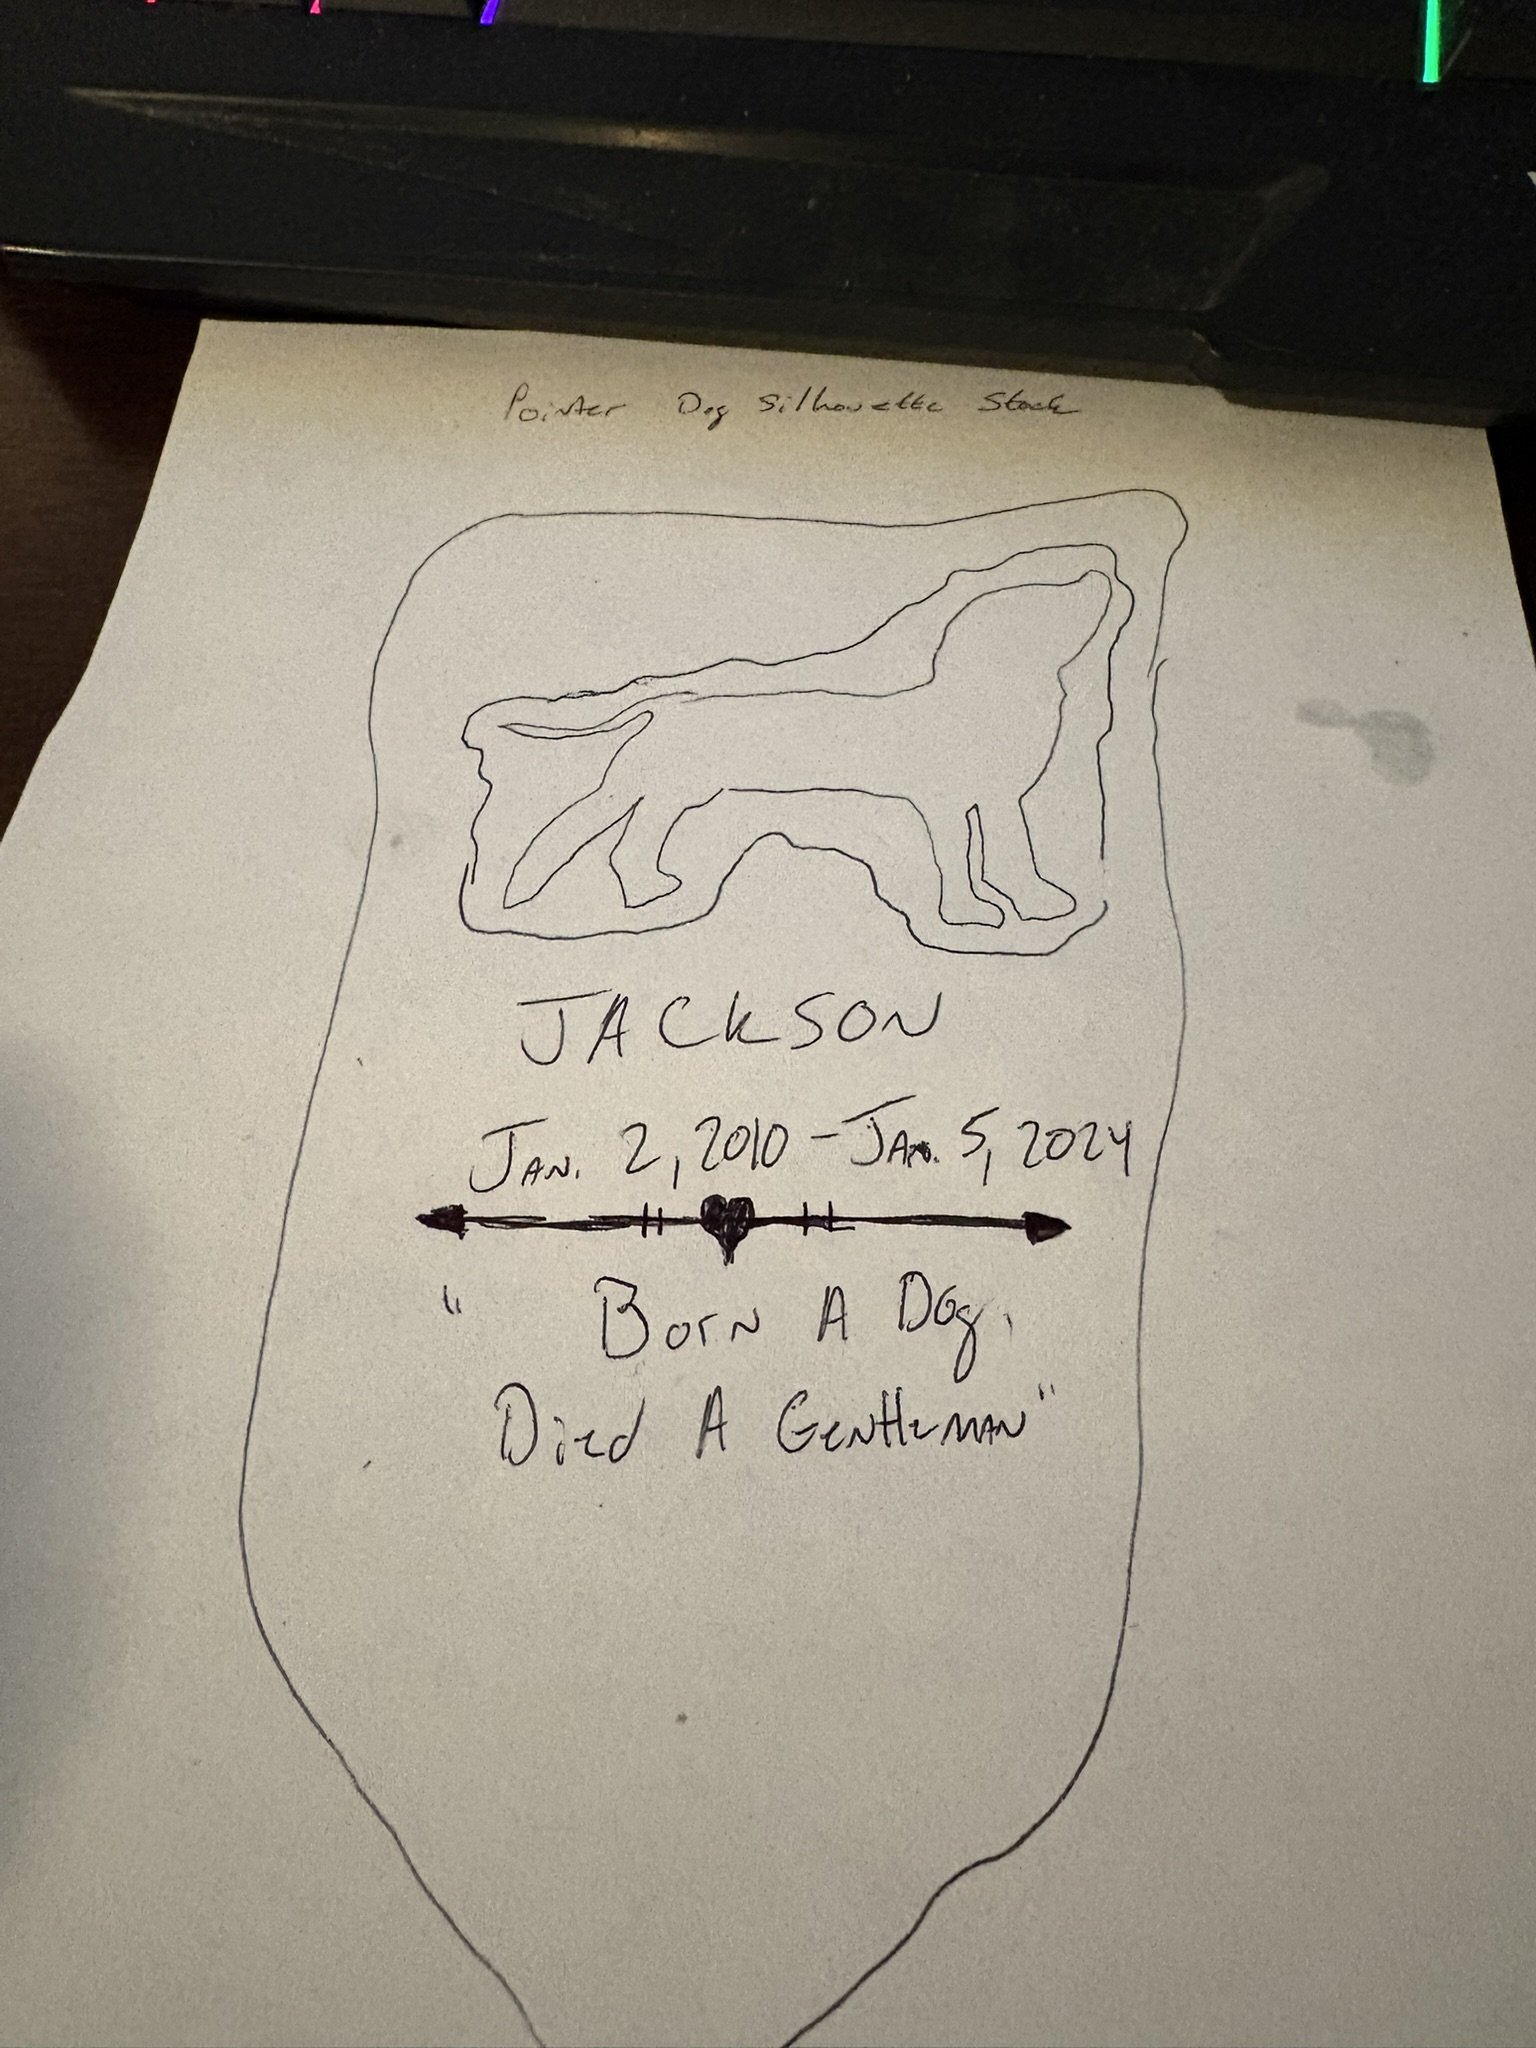 Pointer Dog Silhouette Stock
JACKSON
JAN. 2, 2010 - JAN. 5, 2024
" Born A Dog,
Died A Gentleman"